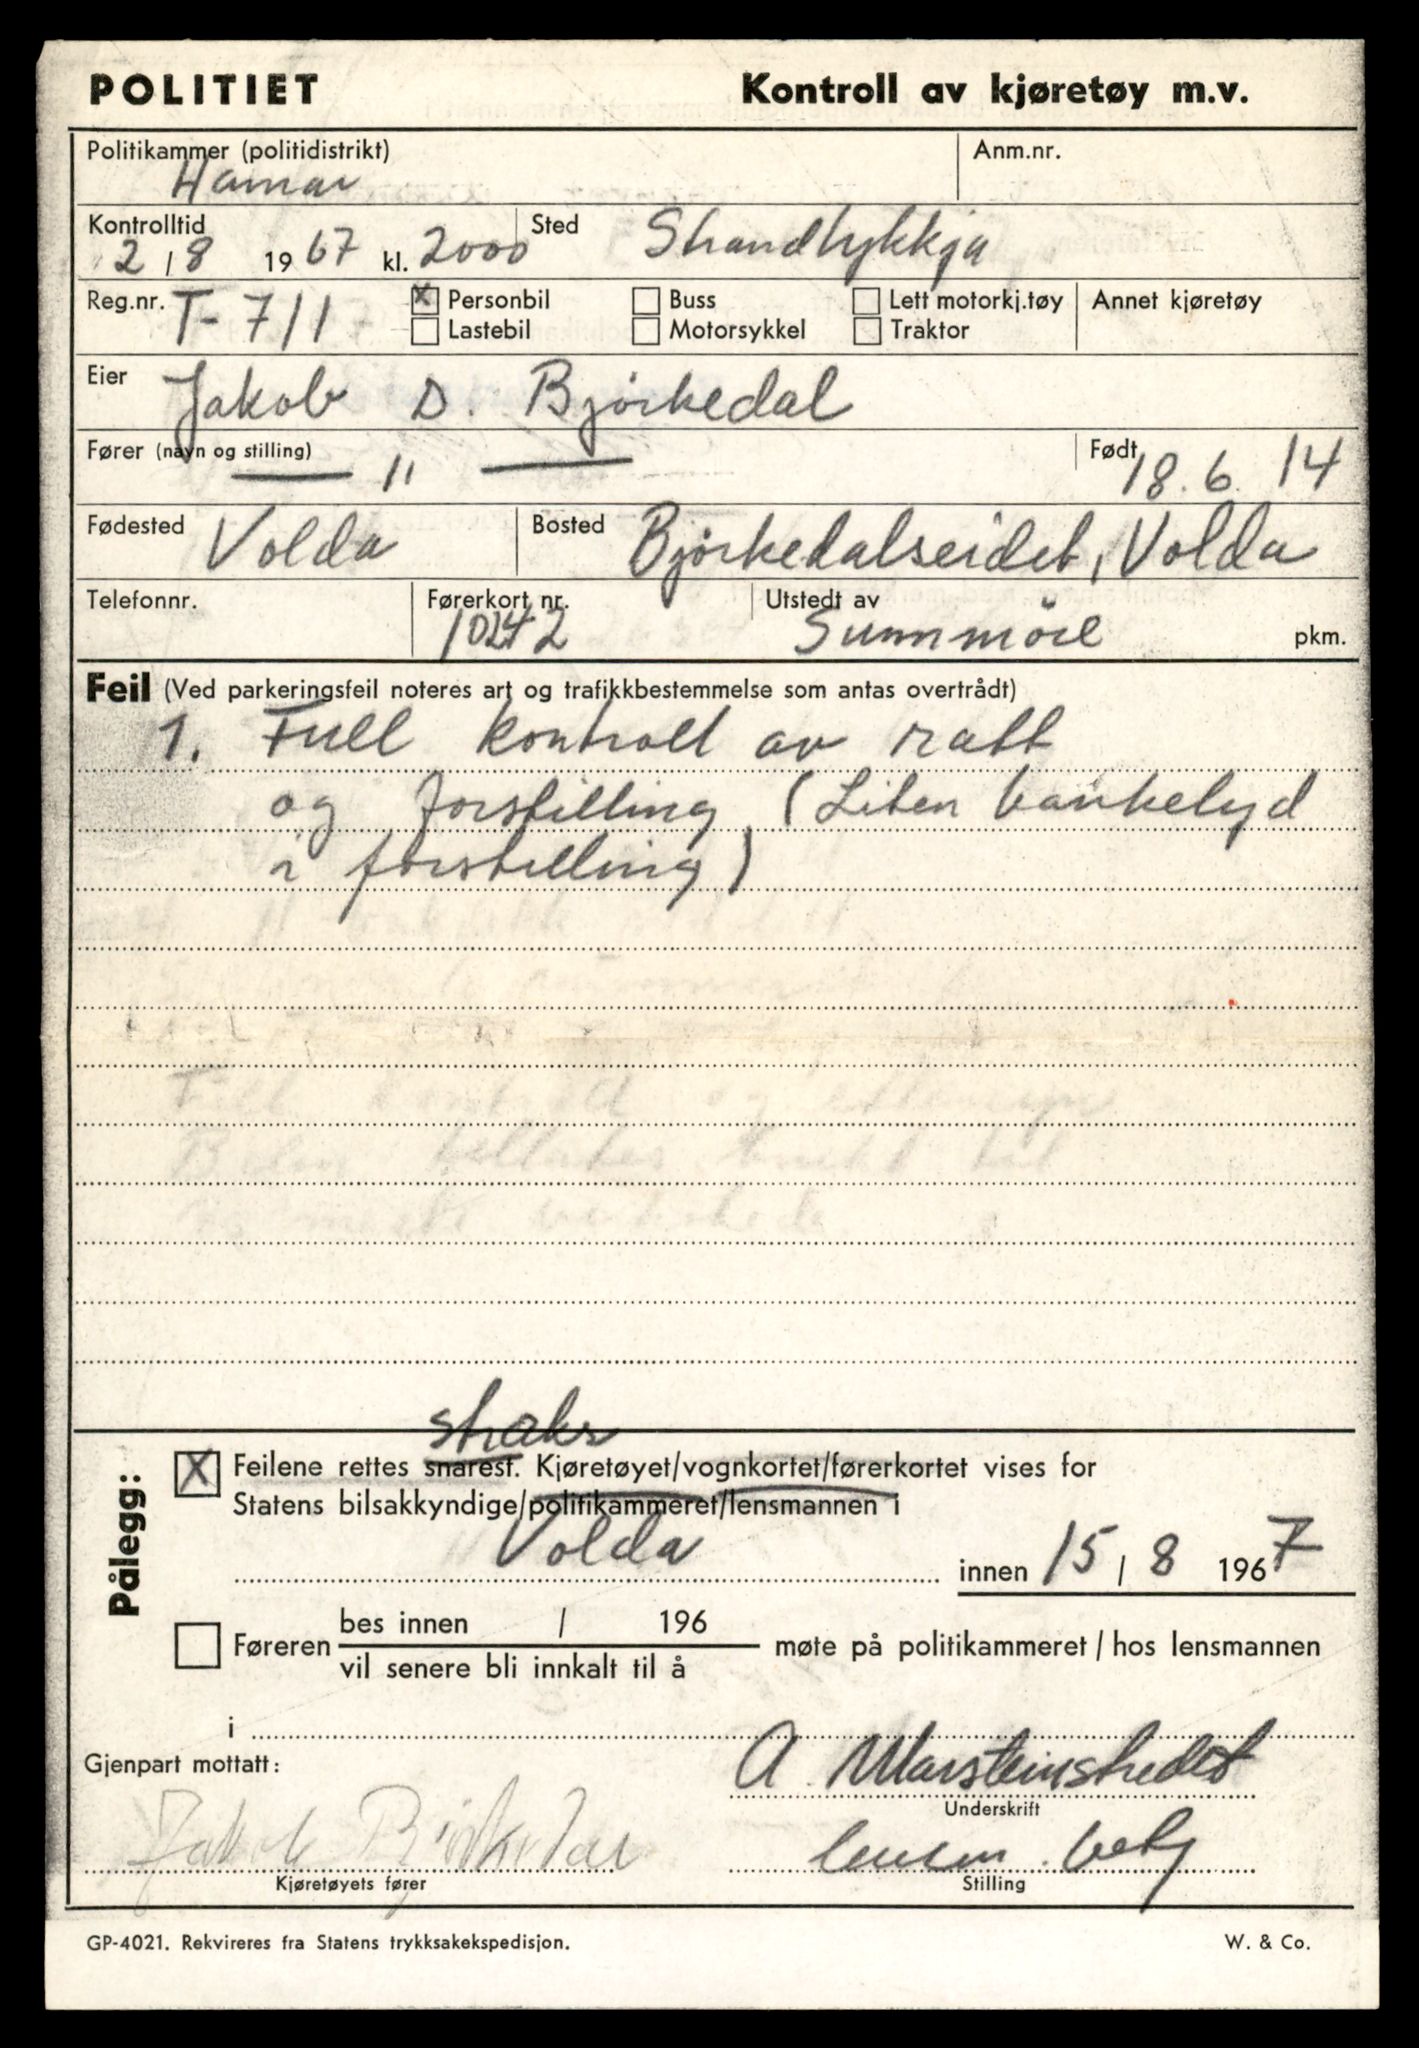 POLITIET Kontroll av kjøretøy m.v.
Politikammer (politidistrikt) Anm.nr.
Hamar
Kontrolltid Sted Strandlykkja
2/8 1967 kl. 2000
Reg.nr. T-711 [x] Personbil [ ] Buss [ ] Lett motorkj.tøy Annet kjøretøy
[ ] Lastebil [ ] Motorsykkel [ ] Traktor
Eier Jakob D. Bjørkedal
Fører (navn og stilling) — " — Født 18.6.14
Fødested Volda Bosted Bjørkedalseidet, Volda
Telefonnr. Førerkort nr. Utstedt av
10242 Sunnmöre pkm.
Feil (Ved parkeringsfeil noteres art og trafikkbestemmelse som antas overtrådt)
1. Full kontroll av ratt
og forstilling (Liten bankelyd
i forstilling)
Full kontroll og ettersyn
straks
Pålegg:
[x] Feilene rettes snarest. Kjøretøyet/vognkortet/førerkortet vises for
Statens bilsakkyndige/politikammeret/lensmannen i
Volda innen 15/8 1967
bes innen / 196
[ ] Føreren møte på politikammeret/hos lensmannen
vil senere bli innkalt til å
i
Gjenpart mottatt: A
Underskrift
Jakob Bjørkedal
Kjøretøyets fører Stilling
GP-4021. Rekvireres fra Statens trykksakekspedisjon. W. & Co.